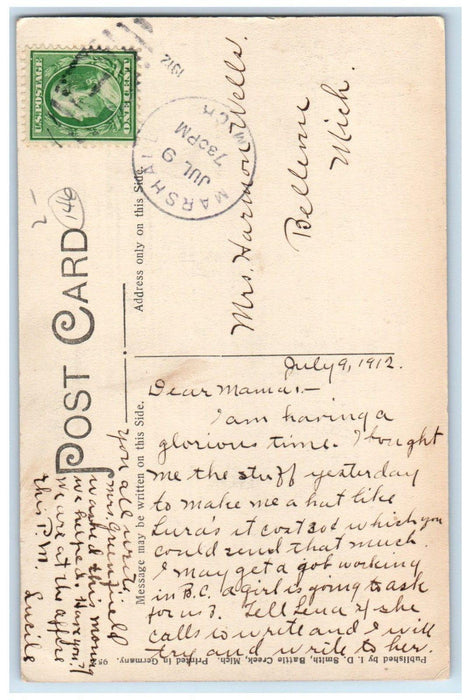 U.S.POSTAGE
ONE CENT
1912
MARSHALL
MICH
JUL 9
730PM
146
POST CARD
Address only on this Side.
Mrs. Harmon Wells.
Bellevue
Mich.
July 9, 1912.
Dear Mama:-
I am having a
glorious time. I bought
me the stuff yesterday
to make me a hat like
Lura's it cost 30¢ which you
could send that much.
I may get a got working
in B.C. a girl is going to ask
for us 3. Tell Lena if she
calls to write and I will
try and write to her.
Message may be written on this Side.
You all write.
Mrs Greenfield
washed this morning
we helped. Hurx you?
We are at the office
this P.M. Lucile
95
Published by I. D. Smith, Battle Creek, Mich. Printed in Germany.